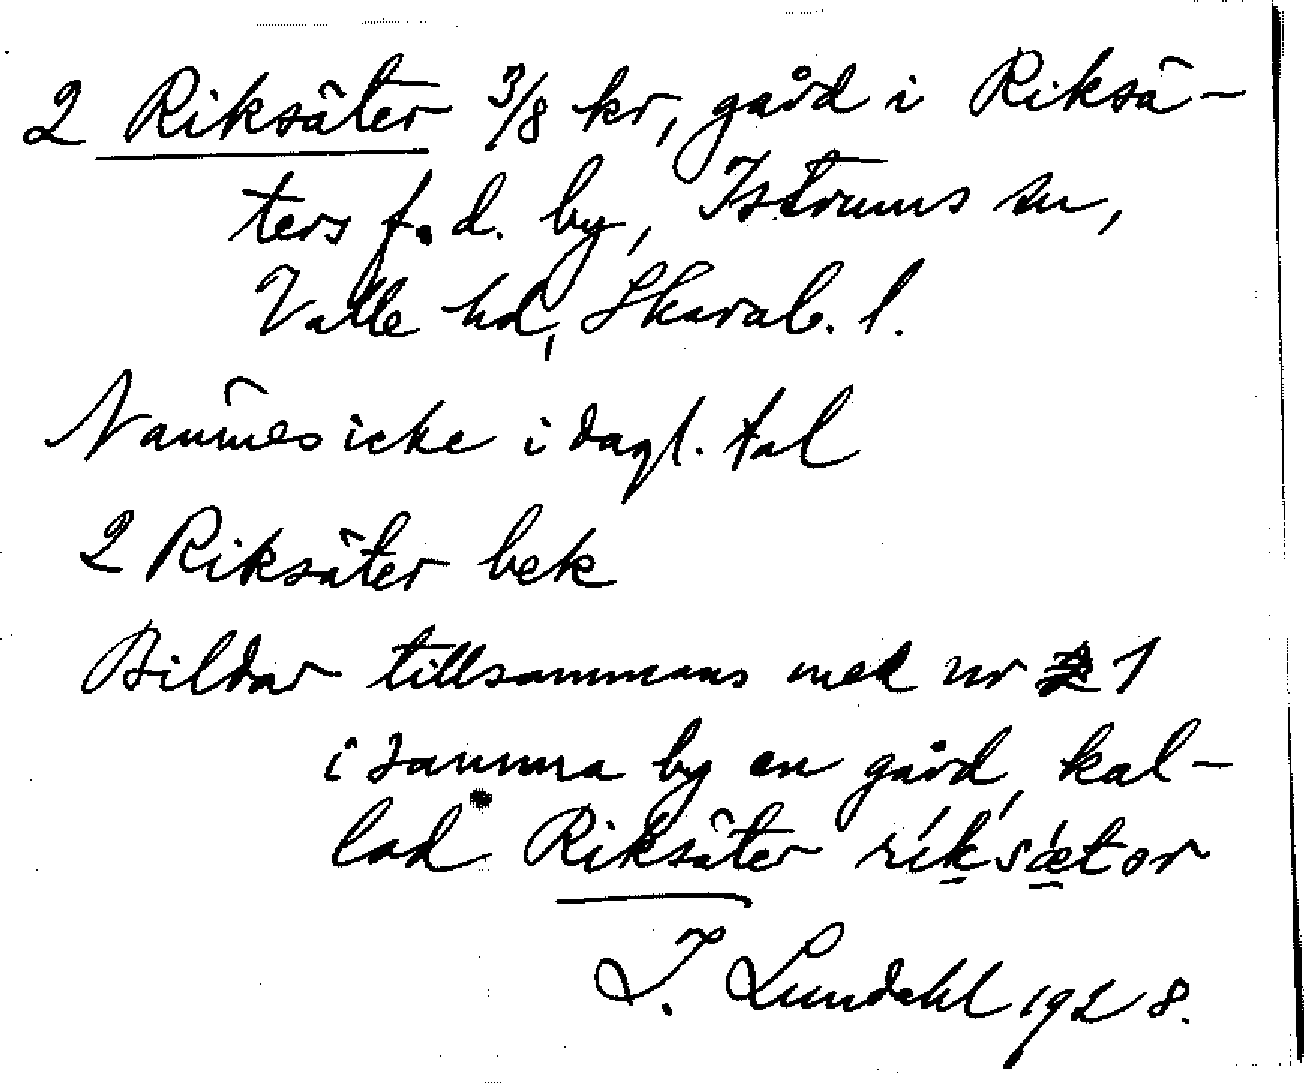 2 Riksäter 3/8 kr, gård i Riksä-
ters f.d. by, Istrums sn,
Valle hd, Skarab. l.
Nämnes icke i dagl. tal
2 Riksäter bek
Bildar tillsammans med nr 1
i samma by en gård, kal-
lad Riksäter rík'sǽtor
I. Lundahl 1928.